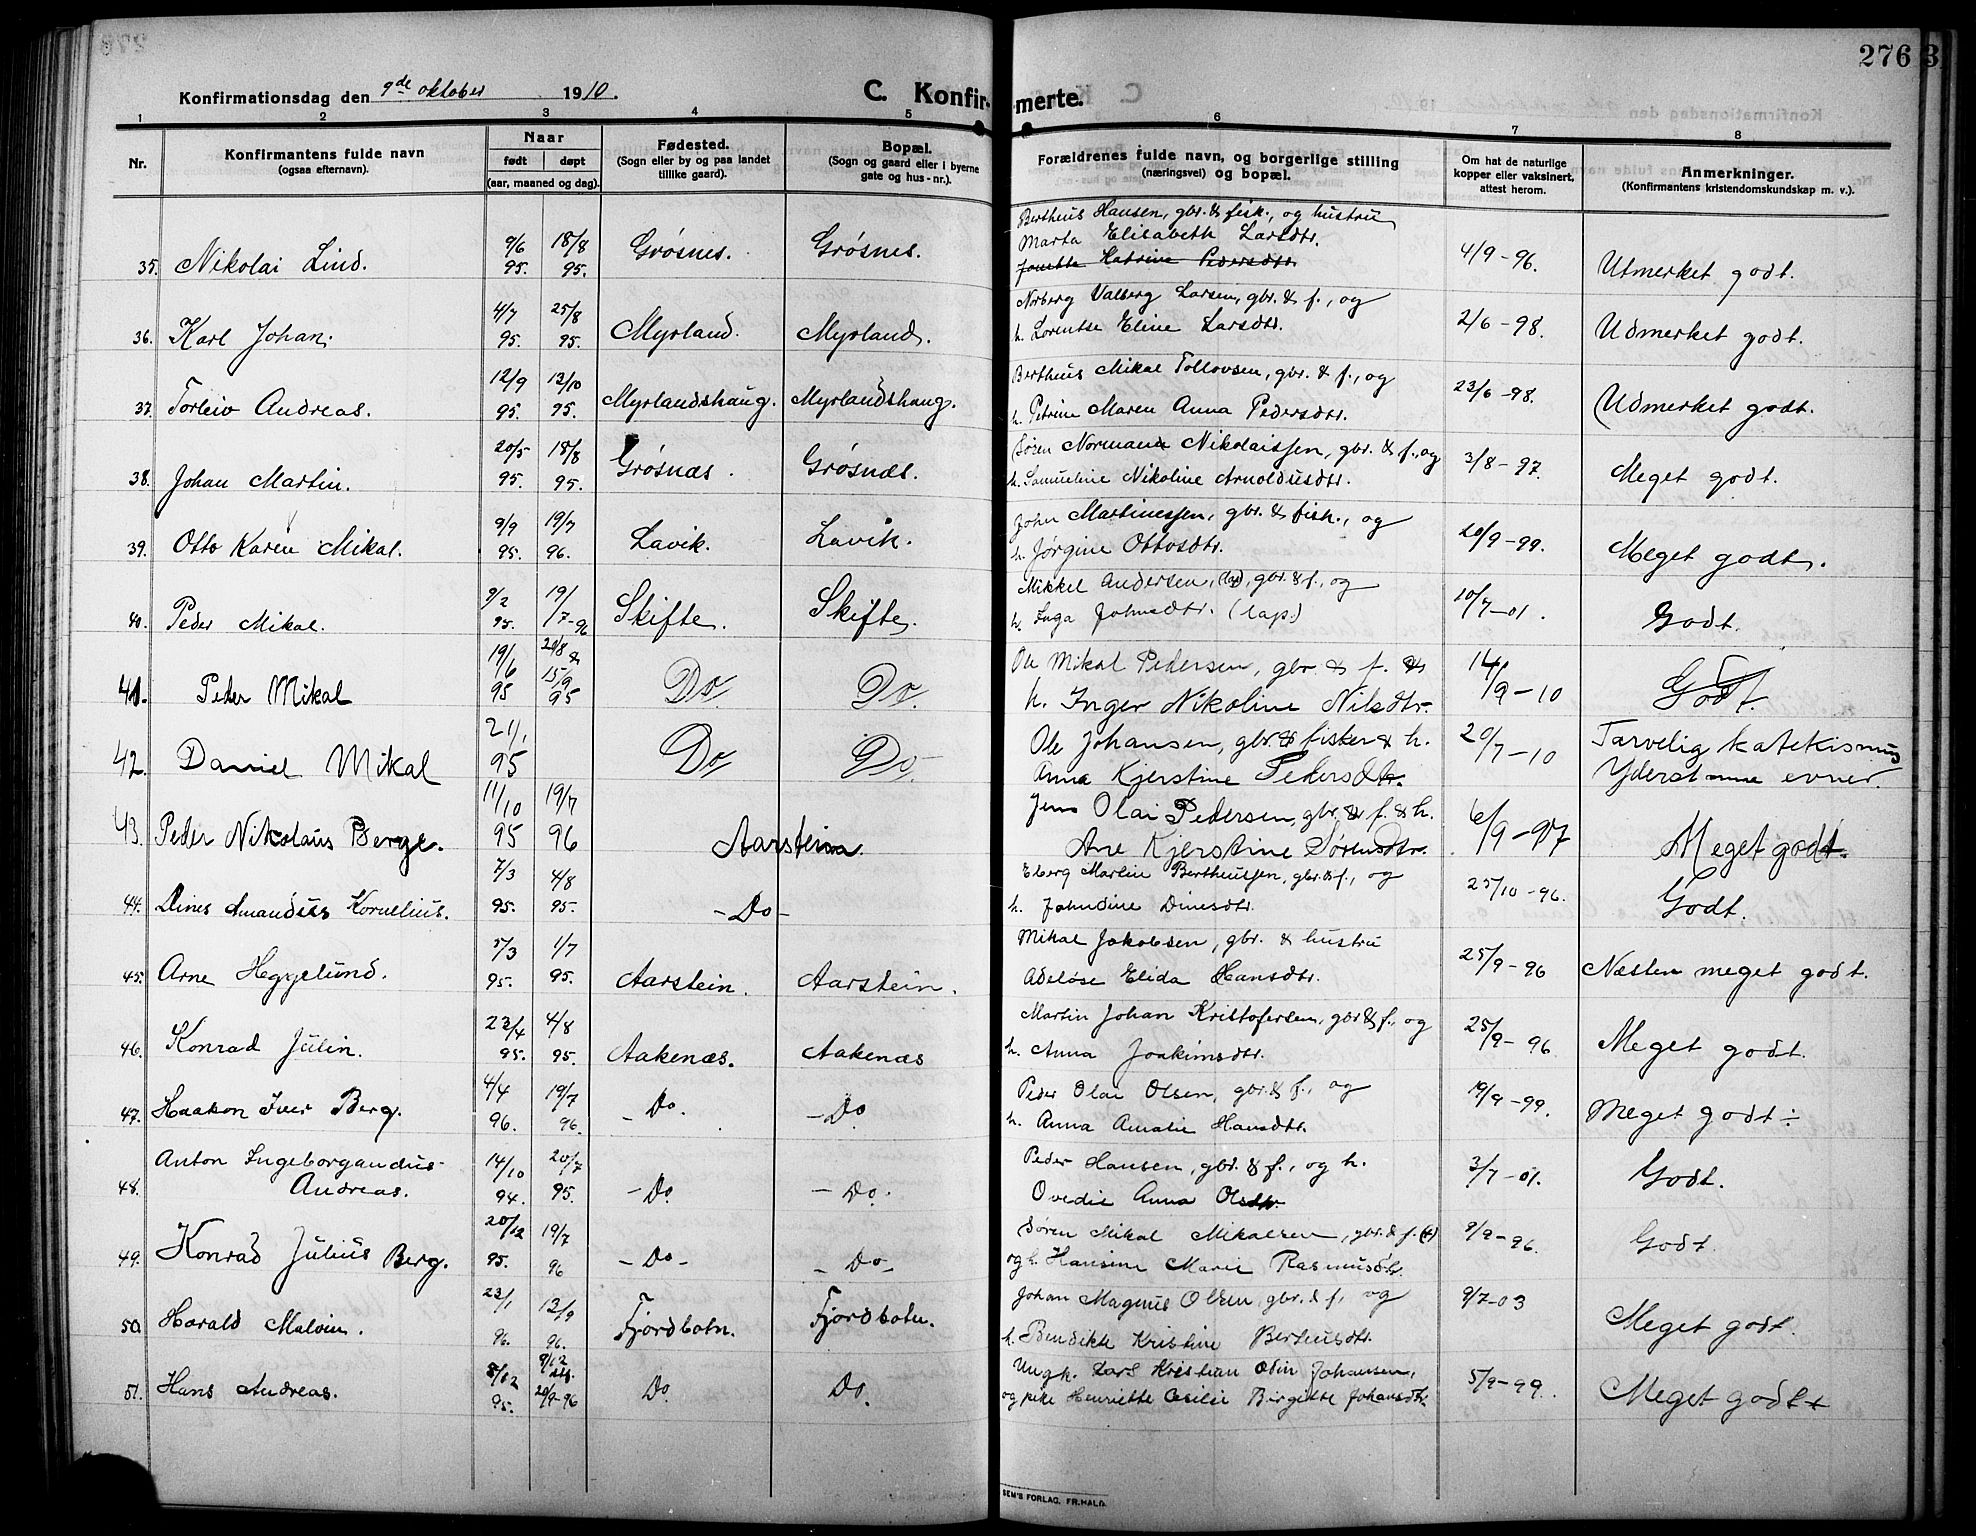 276 3
Konfirmationsdag den 9de oktober 1910.
C. Konfir- -merte.
1 2 3 4 5 6 7 8
Nr.
Konfirmantens fulde navn
(ogsaa efternavn).
Naar
født døpt
(aar, maaned og dag).
Fødested.
(Sogn eller by og paa landet
tillike gaard).
Bopæl.
(Sogn og gaard eller i byerne
gate og hus-nr.).
Forældrenes fulde navn, og borgerlige stilling
(næringsvei) og bopæl.
Om hat de naturlige
kopper eller vaksinert,
attest herom.
Anmerkninger.
(Konfirmantens kristendomskundskap m. v.).
Bertheus Hansen, gbr. & fisk., og hustru
Marta Elisabeth Larsdtr.
35. Nikolai Lind. 9/6 95. 18/8 95. Grøsnes. Grøsnes. 4/9-96. Utmerket godt.
Jonette Katrine Pedersdtr.
Norberg Valberg Larsen, gbr. & f., og
36. Karl Johan. 4/7 95. 25/8 95. Myrland. Myrland. h. Lorentse Eline Larsdtr. 2/6-98. Udmerket godt.
Bertheus Mikal Tollovsen, gbr. & f., og
37. Torleiv Andreas. 12/9 95. 13/10 95. Myrlandshaug. Myrlandshaug. h. Petrine Maren Anna Pedersdtr. 23/6-98. Udmerket godt.
Søren Normann Nikolaissen, gbr. & f., og
38. Johan Martin. 20/5 95. 18/8 95. Grøsnæs. Grøsnæs. h. Samueline Nikoline Arnoldusdtr. 3/8-97. Meget godt.
Johan Martinessen, gbr. & fisk., og
39. Otto Karen Mikal. 9/9 95. 19/7 96. Lavik. Lavik. h. Jørgine Ottosdtr. 20/9-99. Meget godt.
Mikkel Andersen, (lap), gbr. & f., og
40. Peder Mikal. 9/2 95. 19/7-96 Skifte. Skifte. h. Inga Johnsdtr. (lap.) 10/7-01. Godt.
Ole Mikal Pedersen, gbr & f. &
41. Peter Mikal 19/6 95 20/8 & 15/9 95 Do. Do. h. Inger Nikoline Nilsdtr. 14/9-10 Godt.
Ole Johansen, gbr. & fisker & h.
42. Daniel Mikal 21/1 95 Do Do Anna Kjerstine Pedersdtr. 20/7-10 Tarvelig katekismus
Yderst evner.
Jens Olai Pedersen, gbr. & f. & h.
43. Peder Nikolaus Berge. 11/10 95 19/7 96 Aarstein. Ane Kjerstine Sørensdtr. 6/9-97 Meget godt.
Eberg Martin Bertheussen, gbr. & f., og
44. Dines Amandus Kornelius. 7/3 95. 4/8 95. -Do- h. Johndine Dinesdtr. 25/10-96. Godt.
Mikal Jakobsen, gbr. & hustru
45. Arne Heggelund. 5/3 95. 1/7 95. Aarstein. Aarstein. Adeløse Elida Hansdtr. 25/9-96 Næsten meget godt.
Martin Johan Kristofersen, gbr & f., og
46. Konrad Julin. 23/4 95. 4/8 95. Aakenæs. Aakenæs h. Anna Joakimsdtr. 25/9-96 Meget godt.
Peder Olai Olsen, gbr. & f., og
47. Haakon Iver Berg. 4/4 96. 19/7 96. - Do. - Do h. Anna Amalie Hansdtr. 19/9-99. Meget godt ÷
Anton Ingeborgandus Peder Hansen, gbr. & f., og h.
48. Andreas. 14/10 94. 20/7 95. - Do. - Do. Ovedie Anna Olsdtr. 3/7-01. Godt.
Søren Mikal Mikalsen, gbr. & f. (+)
49. Konrad Julius Berg. 20/12 95. 19/7 96 - Do - - Do - og h. Hansine Marie Rasmusdtr. 9/9-96. Godt.
Johan Magnus Olsen, gbr. & f., og
50. Harald Malvin. 23/1 96. 13/9 96. Fjordbotn. Fjordbotn. h. Bendikte Kristine Berteusdtr. 9/7-03 Meget godt.
Ungk. Lars Kristian Odin Johansen,
51. Hans Andreas. 8/12 95. 9/12 20/9-96 Do. Do. og pike Henriette Cesilie Birgitte Johansdtr. 5/9-99. Meget godt +
SEM'S FORLAG, FR.HALD.